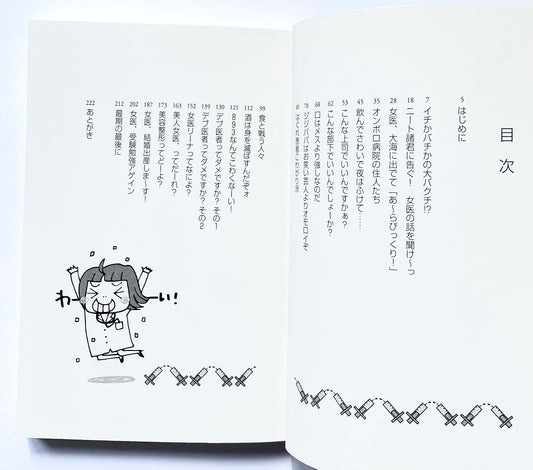 目次
5 はじめに
7 イチかバチかの大バクチ!?
18 ニート諸君に告ぐ! 女医の話を聞け〜っ
28 女医、大海に出でて「あ〜らびっくり!」
35 オンボロ病院の住人たち
45 飲んでさわいで夜はふけて……
53 こんな上司でいいんですかぁ?
62 こんな部下でいいんでしょーか?
68 口はメスより強しなのだ
78 ジジババはお笑い芸人よりオモロイぞ
99 食と戦う人々
112 酒は身を滅ぼすんだぞォ
121 893なんてこわくなーい!
130 デブ医者ってダメですか? その1
139 デブ医者ってダメですか? その2
152 女医リーナってなによ?
163 美人女医、ってだーれ?
173 美容整形ってどーよ?
187 女医、結婚出産しま〜す!
202 女医、受験勉強アゲイン
212 最期の最後に
222 あとがき
わーい!